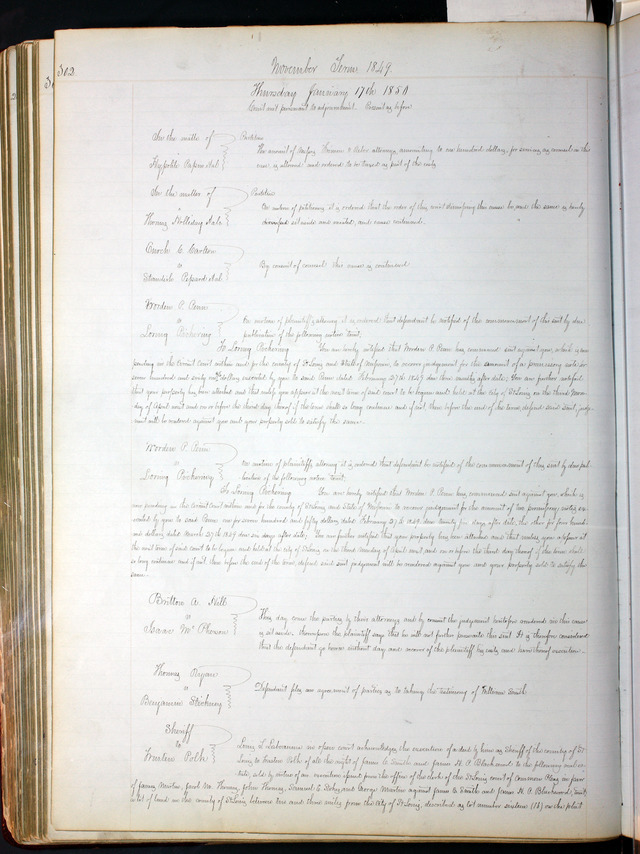 302
November Term 1849
Thursday January 17th 1850
Court met pursuant to adjournment. Present as before
In the matter of Partition
The amount of attorneys amounting to one hundred dollars, for services as counsel in this
case is allowed and ordered to be taxed as part of the costs
In the matter of Partition
On motion of petitioners it is ordered that the order of this court dismissing this cause be, and the same is hereby
set aside and and cause continued.
Thomas Holliday et al
By consent of counsel this cause is continued.
Standish et al
Worden P. Penn
vs
On motion of plaintiffs attorney it is ordered that defendant be notified of the commencement of this suit by due
publication of the following notice towit;
Loring Pickering
To Loring Pickering You are hereby notified that Worden P. Penn has commenced suit against you, which is now
pending in the Circuit Court within and for the county of St Louis and State of Missouri, to recover judgement for the amount of a promissory note for
seven hundred and sixty dollars executed by you to said Penn dated February 27th 1849 due three months after date; You are further notified
that your property has been attached and that unless you appear at the next term of said court to be begun and held at the city of St Louis on the third Mon-
day of April next and on or before the third day thereof if the term shall so long continue and if not, then before the end of the term, defend said suit, judge-
ment will be rendered against you and your property sold to satisfy the same.
Worden P. Penn
vs
On motion of plaintiffs attorney it is ordered that defendant be notified of the commencement of this suit by due pub-
lication of the following notice towit;
Loring Pickering
To Loring Pickering You are hereby notified that Worden P. Penn has commenced suit against you, which is
now pending in the Circuit Court within and for the county of St Louis and State of Missouri to recover judgement for the amount of two promissory notes, exe-
cuted by you to said Penn one for seven hundred and fifty dollars, dated February 27th 1849 due days after date, the other for four hund-
red dollars, dated March 27th 1849 due days after date; You are further notified that your property has been attached and that unless you appear at
the next term of said court to be begun and held at the city of St Louis on the third Monday of April next and on or before the third day thereof if the term shall
so long continue and if not, then before the end of the term, defend said suit judgement will be rendered against you and your property sold to satisfy the
same.
Britton A. Hill
vs
This day come the parties by their attorneys and by consent the judgement heretofore rendered in this cause
is set aside. thereupon the plaintiff says that he will not further prosecute this suit. It is therefore considered
that the defendant go hence without day and recover of the plaintiff his costs and have thereof execution.
Thomas Ryan
vs
Defendant files an agreement of parties as to taking the testimony of William Smith
Benjamin
Sheriff
to
Trusten Polk
Louis T. Labeaume in open court acknowledges the execution of a deed by him as Sheriff of the county of St
Louis to Trusten Polk of all the right of James C. Smith and James H. A. Blackwood to the following real es-
tate, sold by virtue of an execution issued from the office of the clerk of the St Louis court of Common Pleas in favor
of James John Thomas, Samuel C. and George against James C. Smith and James H. A. Blackwood, towit;
a lot of land in the county of St Louis between two and three miles from the city of St Louis, described as lot number sixteen (16) on the plat